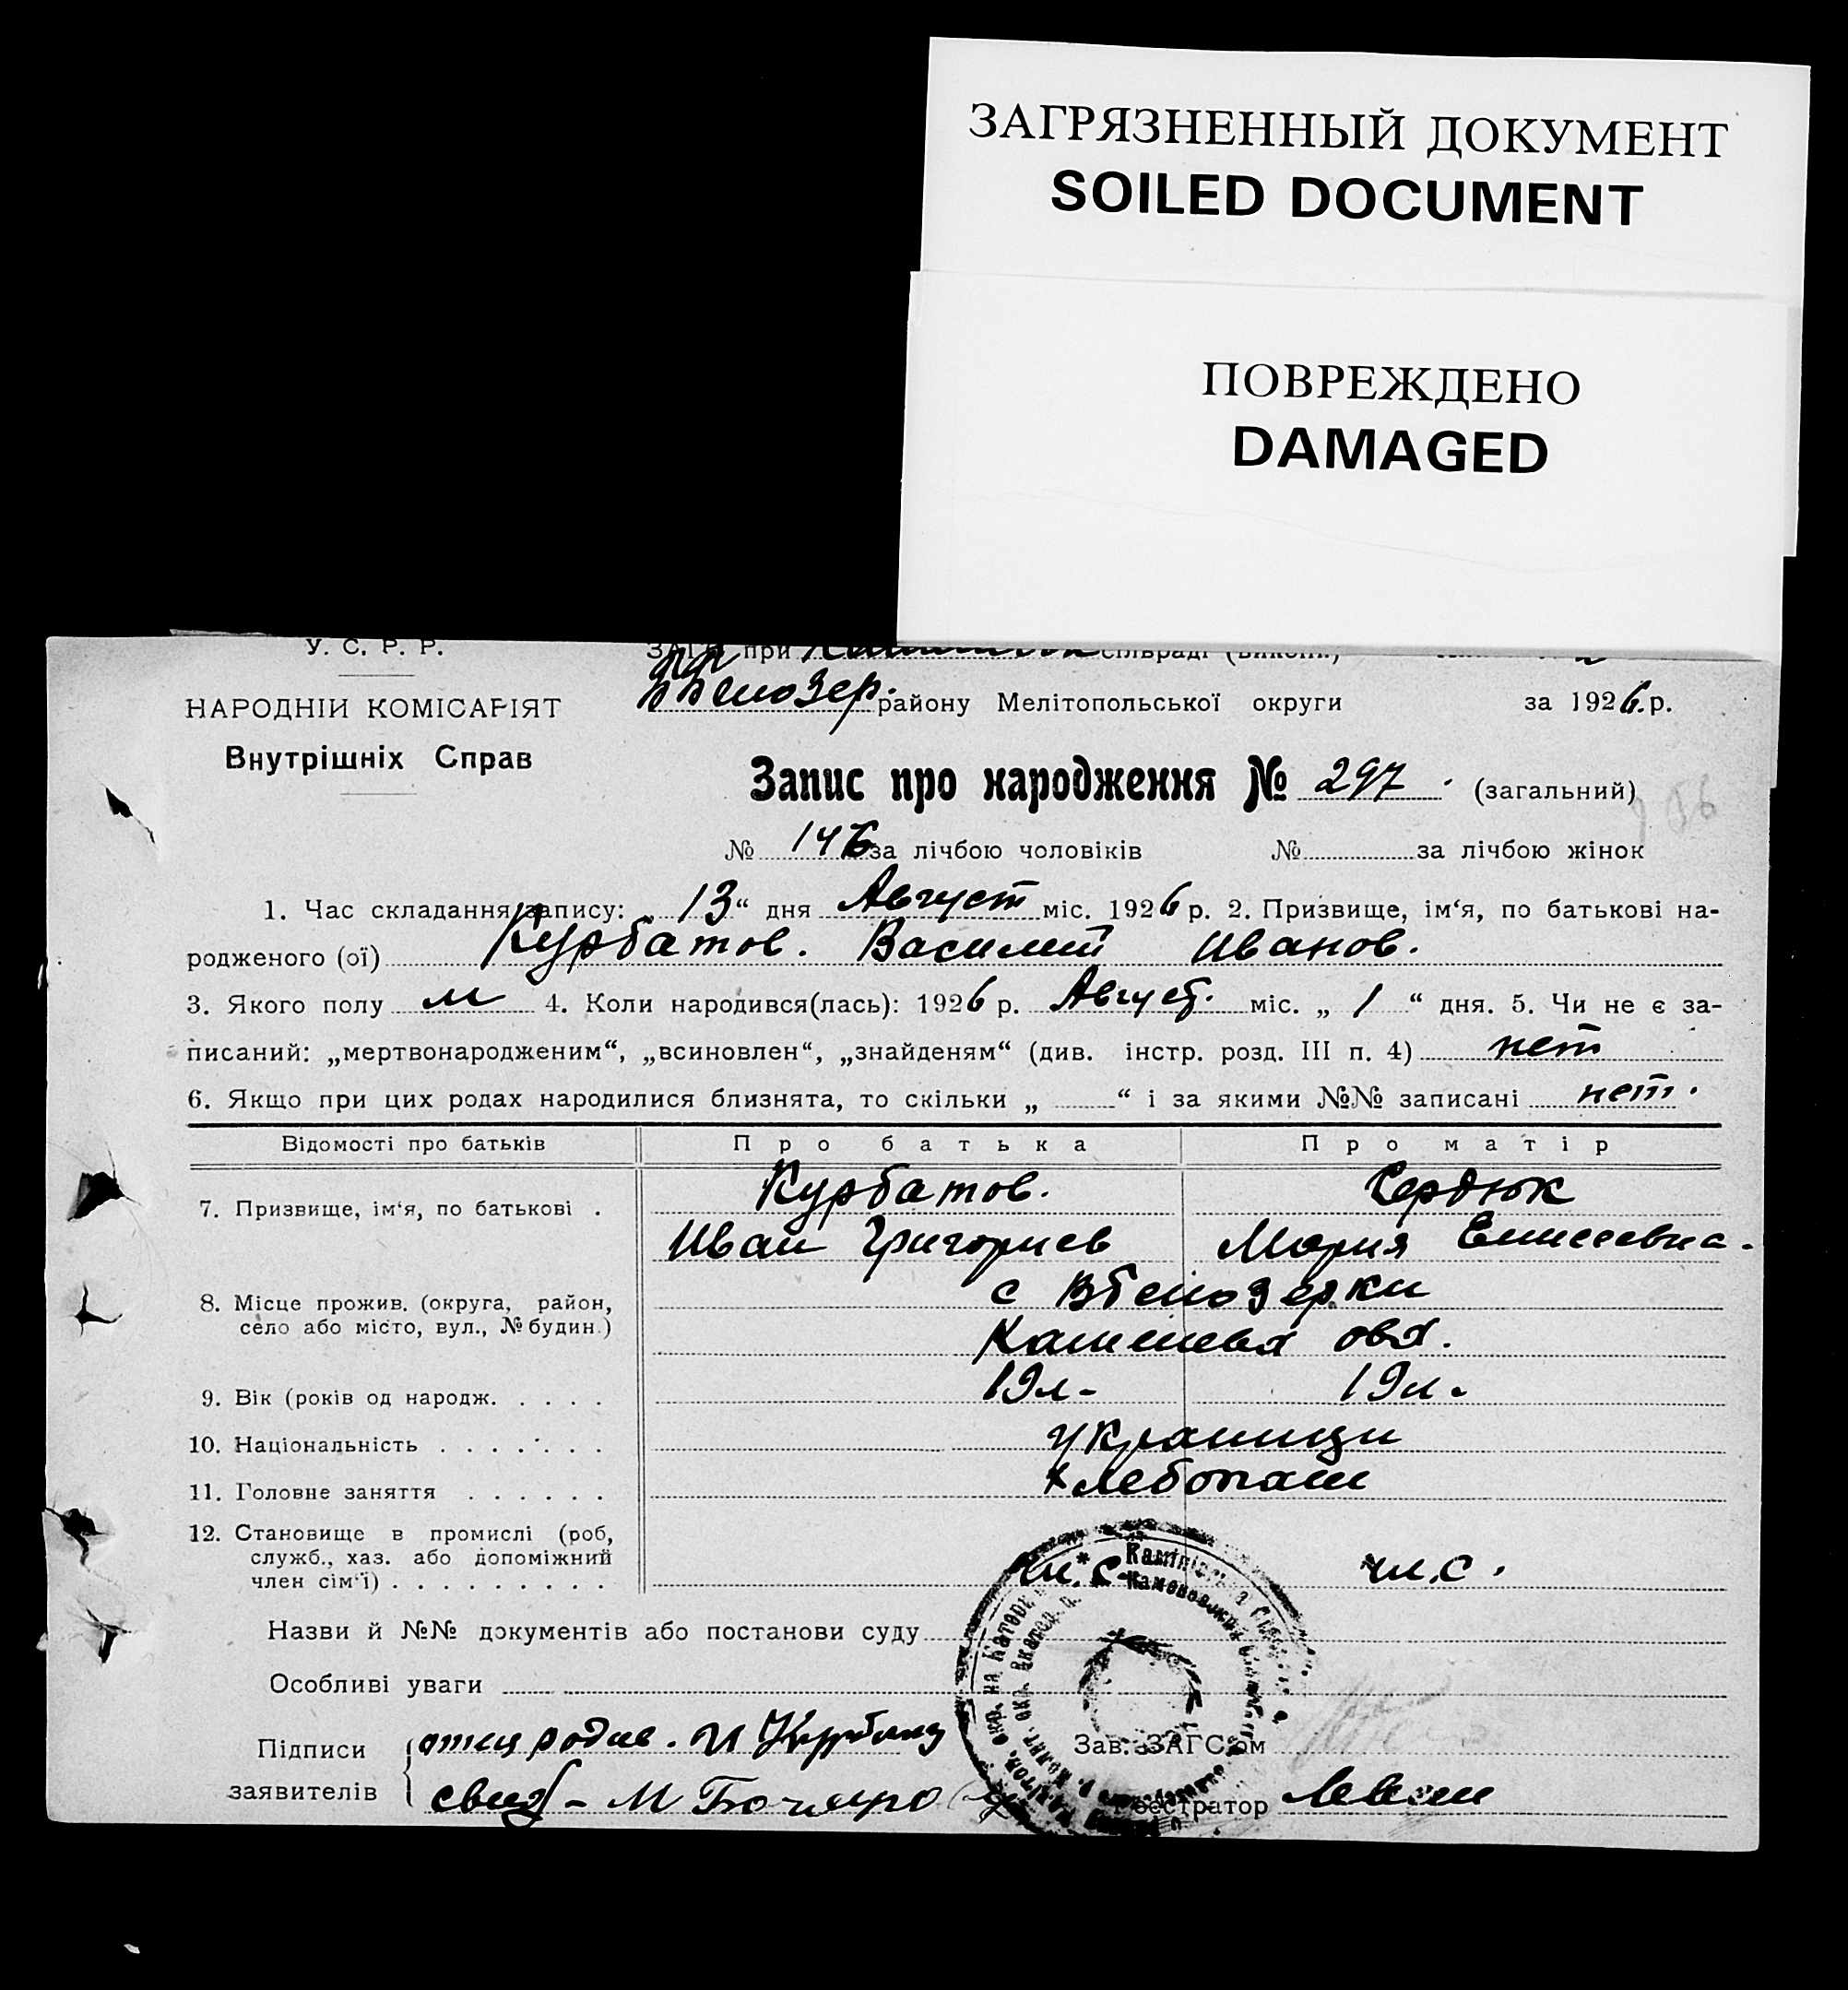 ЗАГРЯЗНЕННЫЙ ДОКУМЕНТ
SOILED DOCUMENT
ПОВРЕЖДЕНО
DAMAGED
У. С. Р. Р.
ЗАГС при сільраді
НАРОДНІЙ КОМІСАРІЯТ
району Мелітопольської округи за 1926.р.
Внутрішніх Справ
Запис про народження № 297. (загальний)
№ 146 за лічбою чоловіків № за лічбою жінок
1. Час складання запису: „ 13 “ дня Август міс. 1926 р. 2. Призвище, ім‘я, по батькові на-
родженого (ої) Курбатов. Василий Иванов.
3. Якого полу м 4. Коли народився(лась): 1926 р. Август. міс. „ 1 “ дня. 5. Чи не є за-
писаний: „мертвонародженим“, „всиновлен“, „знайденям“ (див. інстр. розд. III п. 4) нет
6. Якщо при цих родах народилися близнята, то скільки „ “ і за якими №№ записані нет.
Відомості про батьків Про батька Про матір
7. Призвище, ім‘я, по батькові . Курбатов. Сердюк
Иван Григориев Мария Елисеевна.
8. Місце прожив. (округа, район, с Вбелозерки
село або місто, вул., № будин.)
9. Вік (років од народж. . . . . 19л- 19л.
10. Національність . . . . . . . украинцы
11. Головне заняття . . . . . . хлебопаш
12. Становище в промислі (роб,
служб., хаз. або допоміжний чл.с. чл.с.
член сім‘ї) . . . . . . . . .
Назви й №№ документів або постанови суду
Особливі уваги
Підписи отец родив. И Курбат
Зав. ЗАГС‘ом
заявителів свид - М Бочаро
Реєстратор